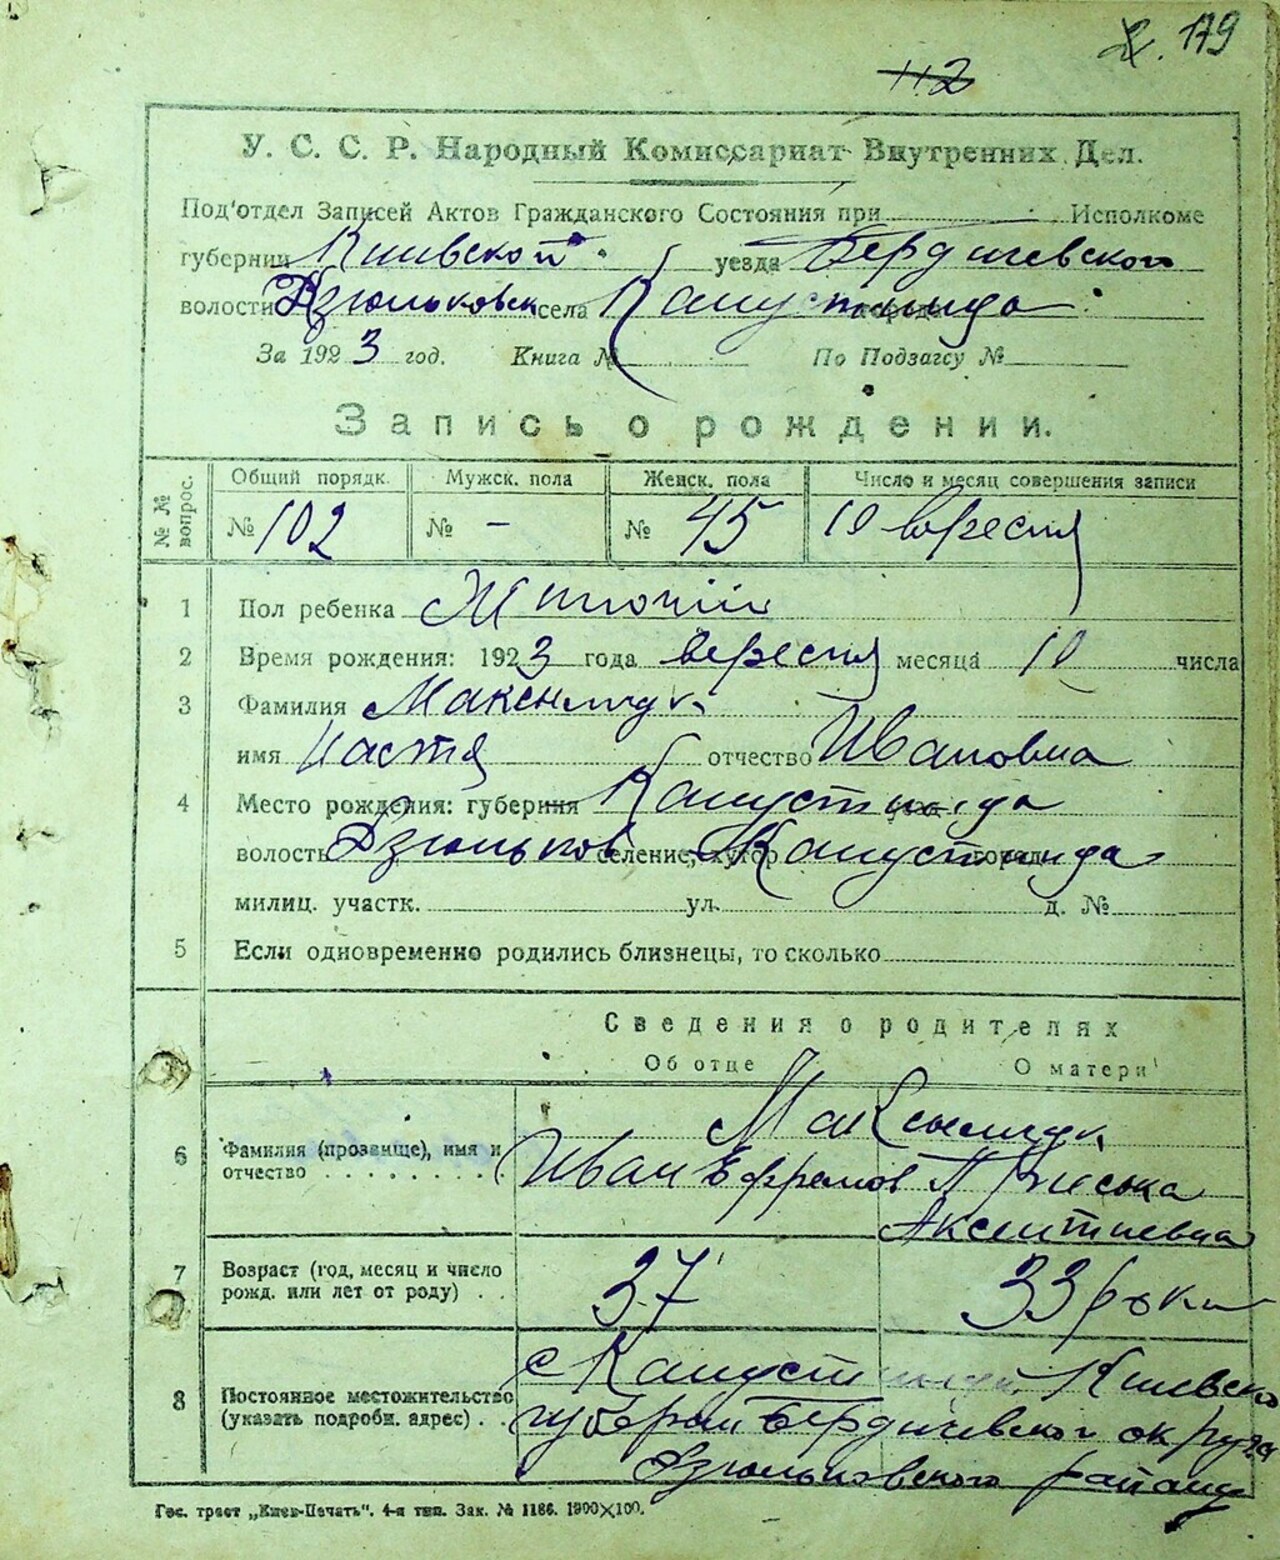 179
112
У. С. С. Р. Народный Комиссариат Внутренних Дел.
Под'отдел Записей Актов Гражданского Состояния при Исполкоме
губернии Киивской уезда Бердичевского
волости Дзюньковск села Капустинца
За 1923 год. Книга № По Подзагсу №
Запись о рождении.
№ № вопрос. Общий порядк. Мужск. пола Женск. пола Число и месяц совершения записи
№ 102 № - № 45 10 вересня
1 Пол ребенка Жиночій
2 Время рождения: 1923 года вересня месяца 10 числа
3 Фамилия Максимчук
имя Настя отчество Ивановна
4 Место рождения: губерния Капустинца
волость Дзюньков селение, хутор Капустинца
милиц. участк. ул. д. №
5 Если одновременно родились близнецы, то сколько
Сведения о родителях
Об отце О матери
Максымчук
6 Фамилия (прозвище), имя и
отчество Иван Ефремов
Аксентиевна
7 Возраст (год, месяц и число
рожд. или лет от роду) 37 33 роки
8 Постоянное местожительство
(указать подробн. адрес)
с Капустинци Киевско
губернии Бердичевского округа
Дзюньковского району
Гос. трест „Киев-Печать“. 4-я тип. Зак. № 1186. 1900×100.